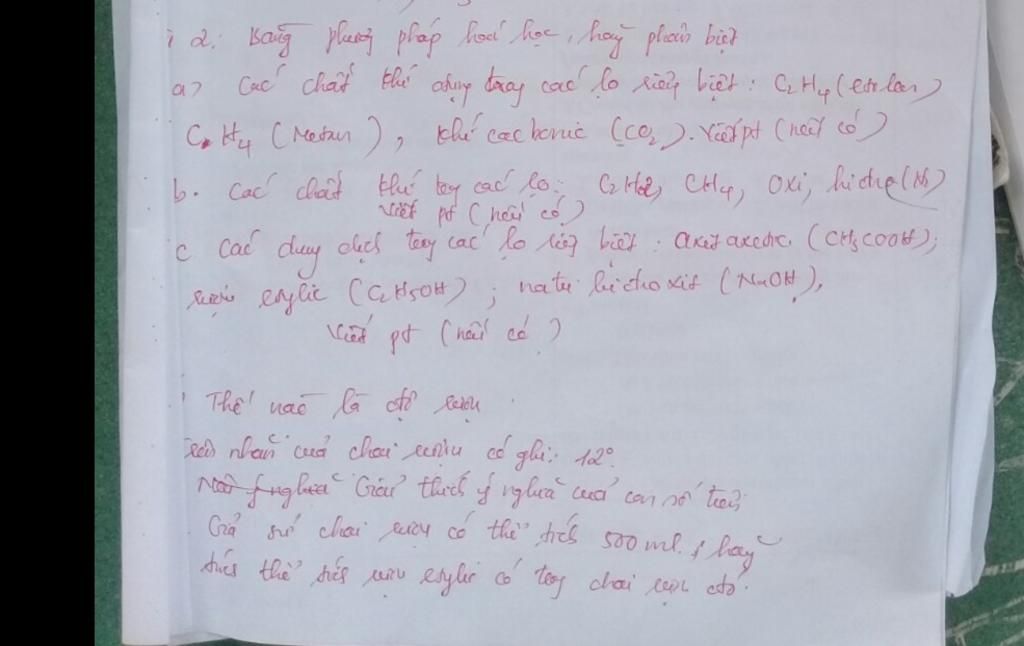 i 2: Bằng phương pháp hoá học, hãy phân biệt
a) Các chất khí đựng trong các lọ riêng biệt: C2H4 (etilen)
CH4 (Metan), khí cacbonic (CO2). Viết pt (nếu có)
b. Các chất khí trong các lọ: C2H2, CH4, Oxi, hiđro (N2)
Viết pt (nếu có)
c Các dung dịch trong các lọ riêng biệt: axit axetic (CH3COOH);
rượu etylic (C2H5OH); natri hiđroxit (NaOH),
Viết pt (nếu có)
Thế nào là độ rượu
trên nhãn của chai rượu có ghi: 12°.
Giải thích ý nghĩa của con số trên;
Giả sử chai rượu có thể tích 500 ml, hãy
tính thể tích rượu etylic có trong chai rượu đó.